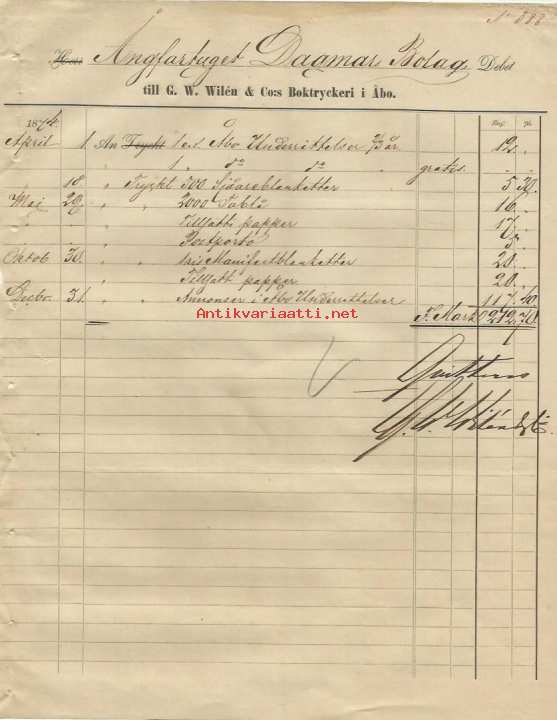 N 588
Herr Ångfartyget Dagmar Bolag Debet
till G. W. Wilén & C:os Boktryckeri i Åbo.
1874. Rmf. Pi.
April 1 An Tryckt 1 ex. Åbo Underrättelser ⅔ år 12 "
" 1 " do do gratis
" 18 " Tryckt 500 Sjöareblanketter 5 30
Maj 29 " " 2000 Tablå 16 "
" Tillsatt papper 17
" Postporto
Oktob 30 " " Manifestblanketter 20
" Tillsatt papper 20
Decbr 31 " " Annonser i Åbo Underrättelser 117 40
F. Mark 272 70
Antikvariaatti.net
Qvitteras
G. W. Wilén & C:o